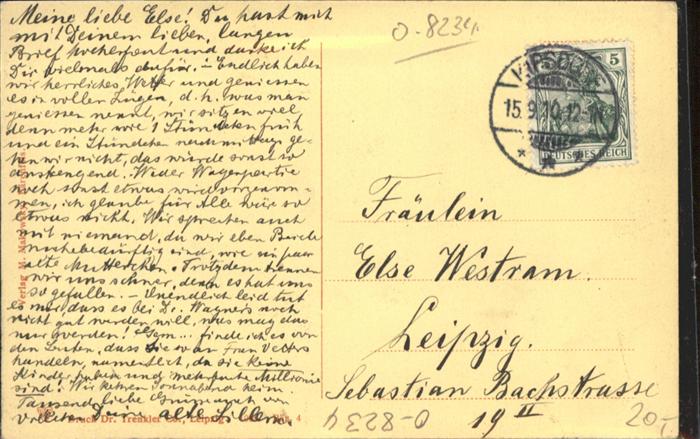 Meine liebe Else! Du hast mich
mit Deinem lieben, langen
Brief hocherfreut und danke ich
Dir vielmals dafür. – Endlich haben
wir herrliches Wetter und geniessen
es in vollen Zügen, d. h. was man
geniessen nennt, wir sitzen viel
denn mehr wie 1 Stündchen früh
und ein Stündchen nachmittags ge-
hen wir nicht, das würde sonst so
anstrengend. Weder Wagenpartie
noch sonst etwas wird vorgenom-
men, ich glaube für Alle hier so
etwas nicht. Wir sprechen auch
mit niemand, da wir eben Beide
ruhebedürftig sind, wie ein paar
alte Mütterchen. Trotzdem trennen
wir uns schwer, denn es hat uns
so gefallen. – Unendlich leid tut
es mir, dass es bei Dr. Wagners noch
nicht gut werden will, was mag das
nur werden! finde ich es von
den Leuten, dass sie so an Frau Vetters
handeln, namentlich, da sie keine
Kinder haben und mehrfache Millionäre
sind! Wir kehren Sonnabend heim
Tausend liebe Grüsse von
Deine alte
Verlag M.
Druck Dr. Trenkler Co., Leipzig 4
O-8234
15.9.10.12-1N
5
DEUTSCHES REICH
Fräulein
Else Westram.
Leipzig.
Sebastian Bachstrasse
19 II
O-8234
20,-